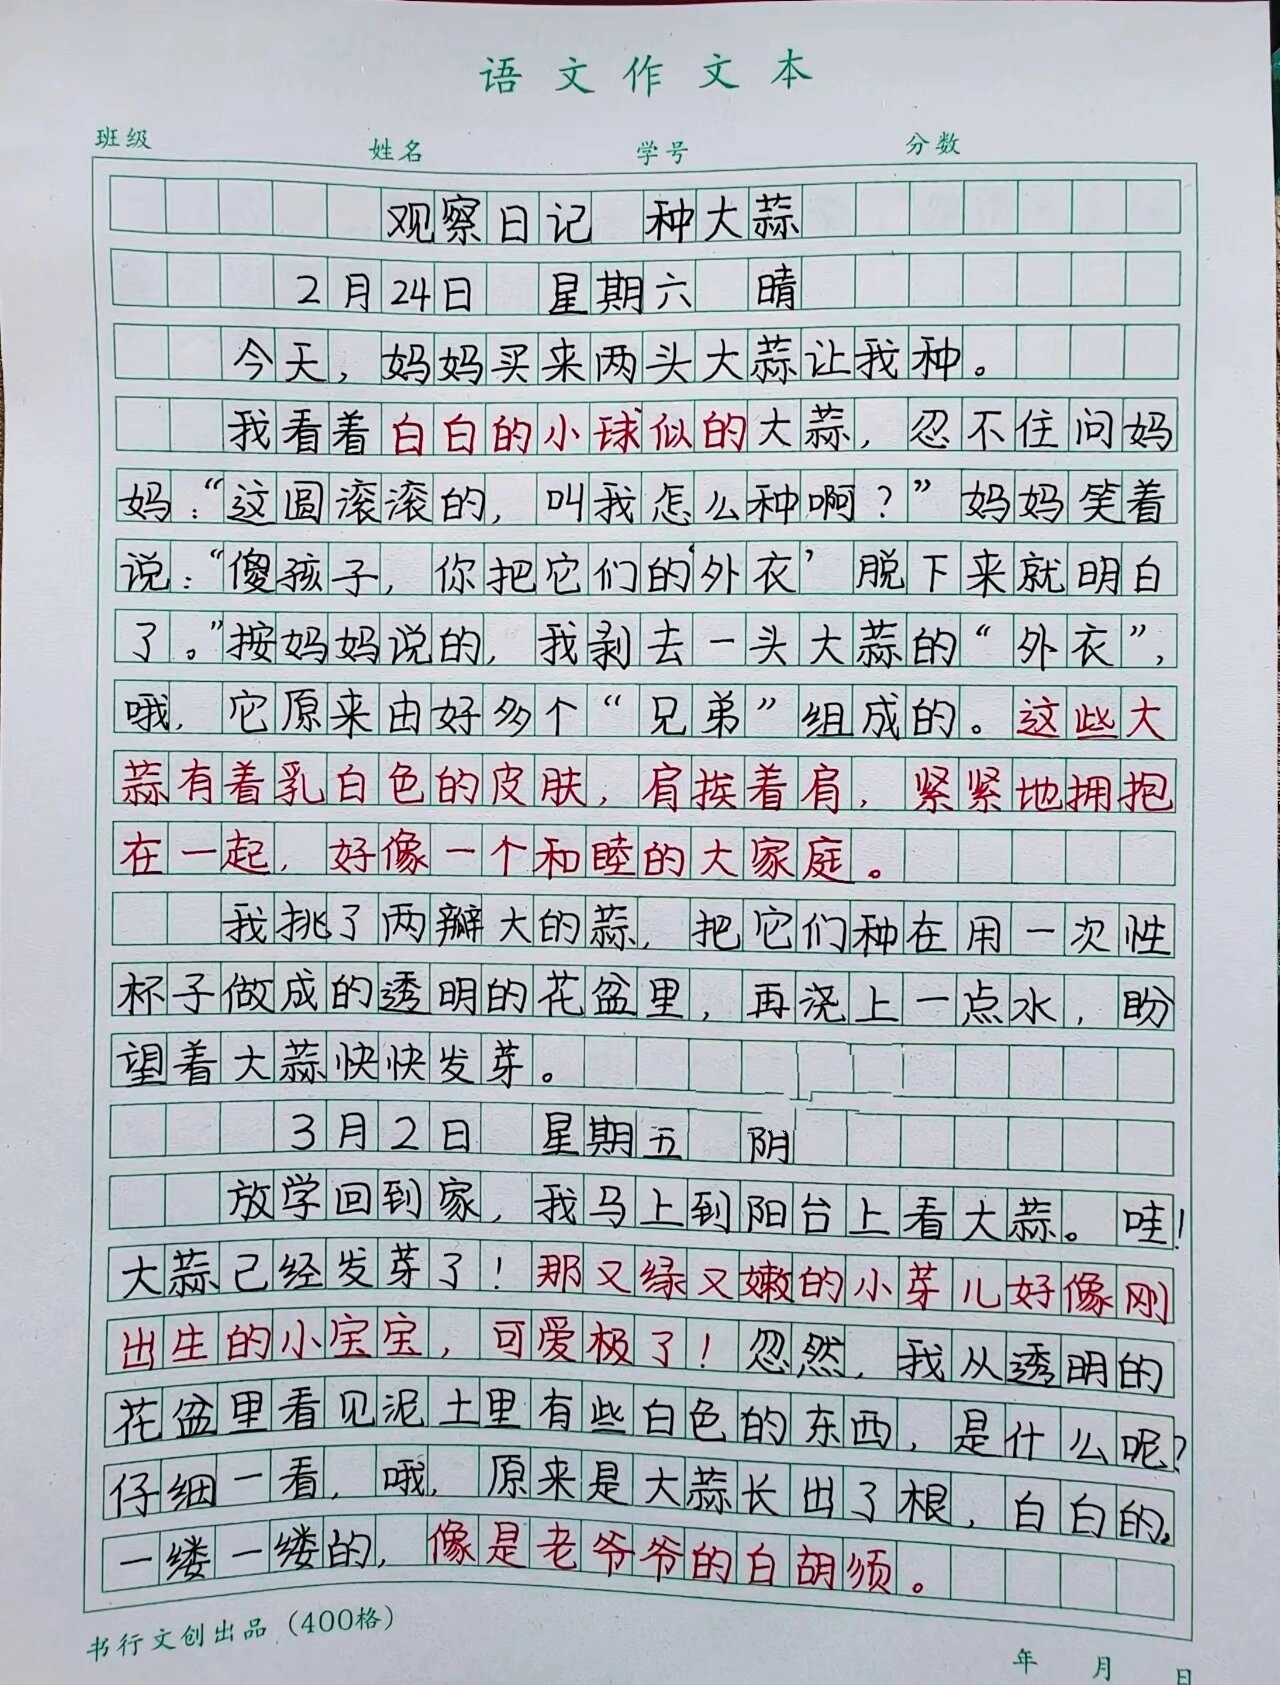 语文作文本
班级 姓名 学号 分数
观察日记 种大蒜
2月24日 星期六 晴
今天，妈妈买来两头大蒜让我种。
我看着白白的小球似的大蒜，忍不住问妈
妈：“这圆滚滚的，叫我怎么种啊？”妈妈笑着
说：“傻孩子，你把它们的‘外衣’脱下来就明白
了。”按妈妈说的，我剥去一头大蒜的“外衣”，
哦，它原来由好多个“兄弟”组成的。这些大
蒜有着乳白色的皮肤，肩挨着肩，紧紧地拥抱
在一起，好像一个和睦的大家庭。
我挑了两瓣大的蒜，把它们种在用一次性
杯子做成的透明的花盆里，再浇上一点水，盼
望着大蒜快快发芽。
3月2日 星期五 阴
放学回到家，我马上到阳台上看大蒜。哇！
大蒜已经发芽了！那又绿又嫩的小芽儿好像刚
出生的小宝宝，可爱极了！忽然，我从透明的
花盆里看见泥土里有些白色的东西，是什么呢？
仔细一看，哦，原来是大蒜长出了根，白白的，
一缕一缕的，像是老爷爷的白胡须。
书行文创出品（400格）
年 月 日